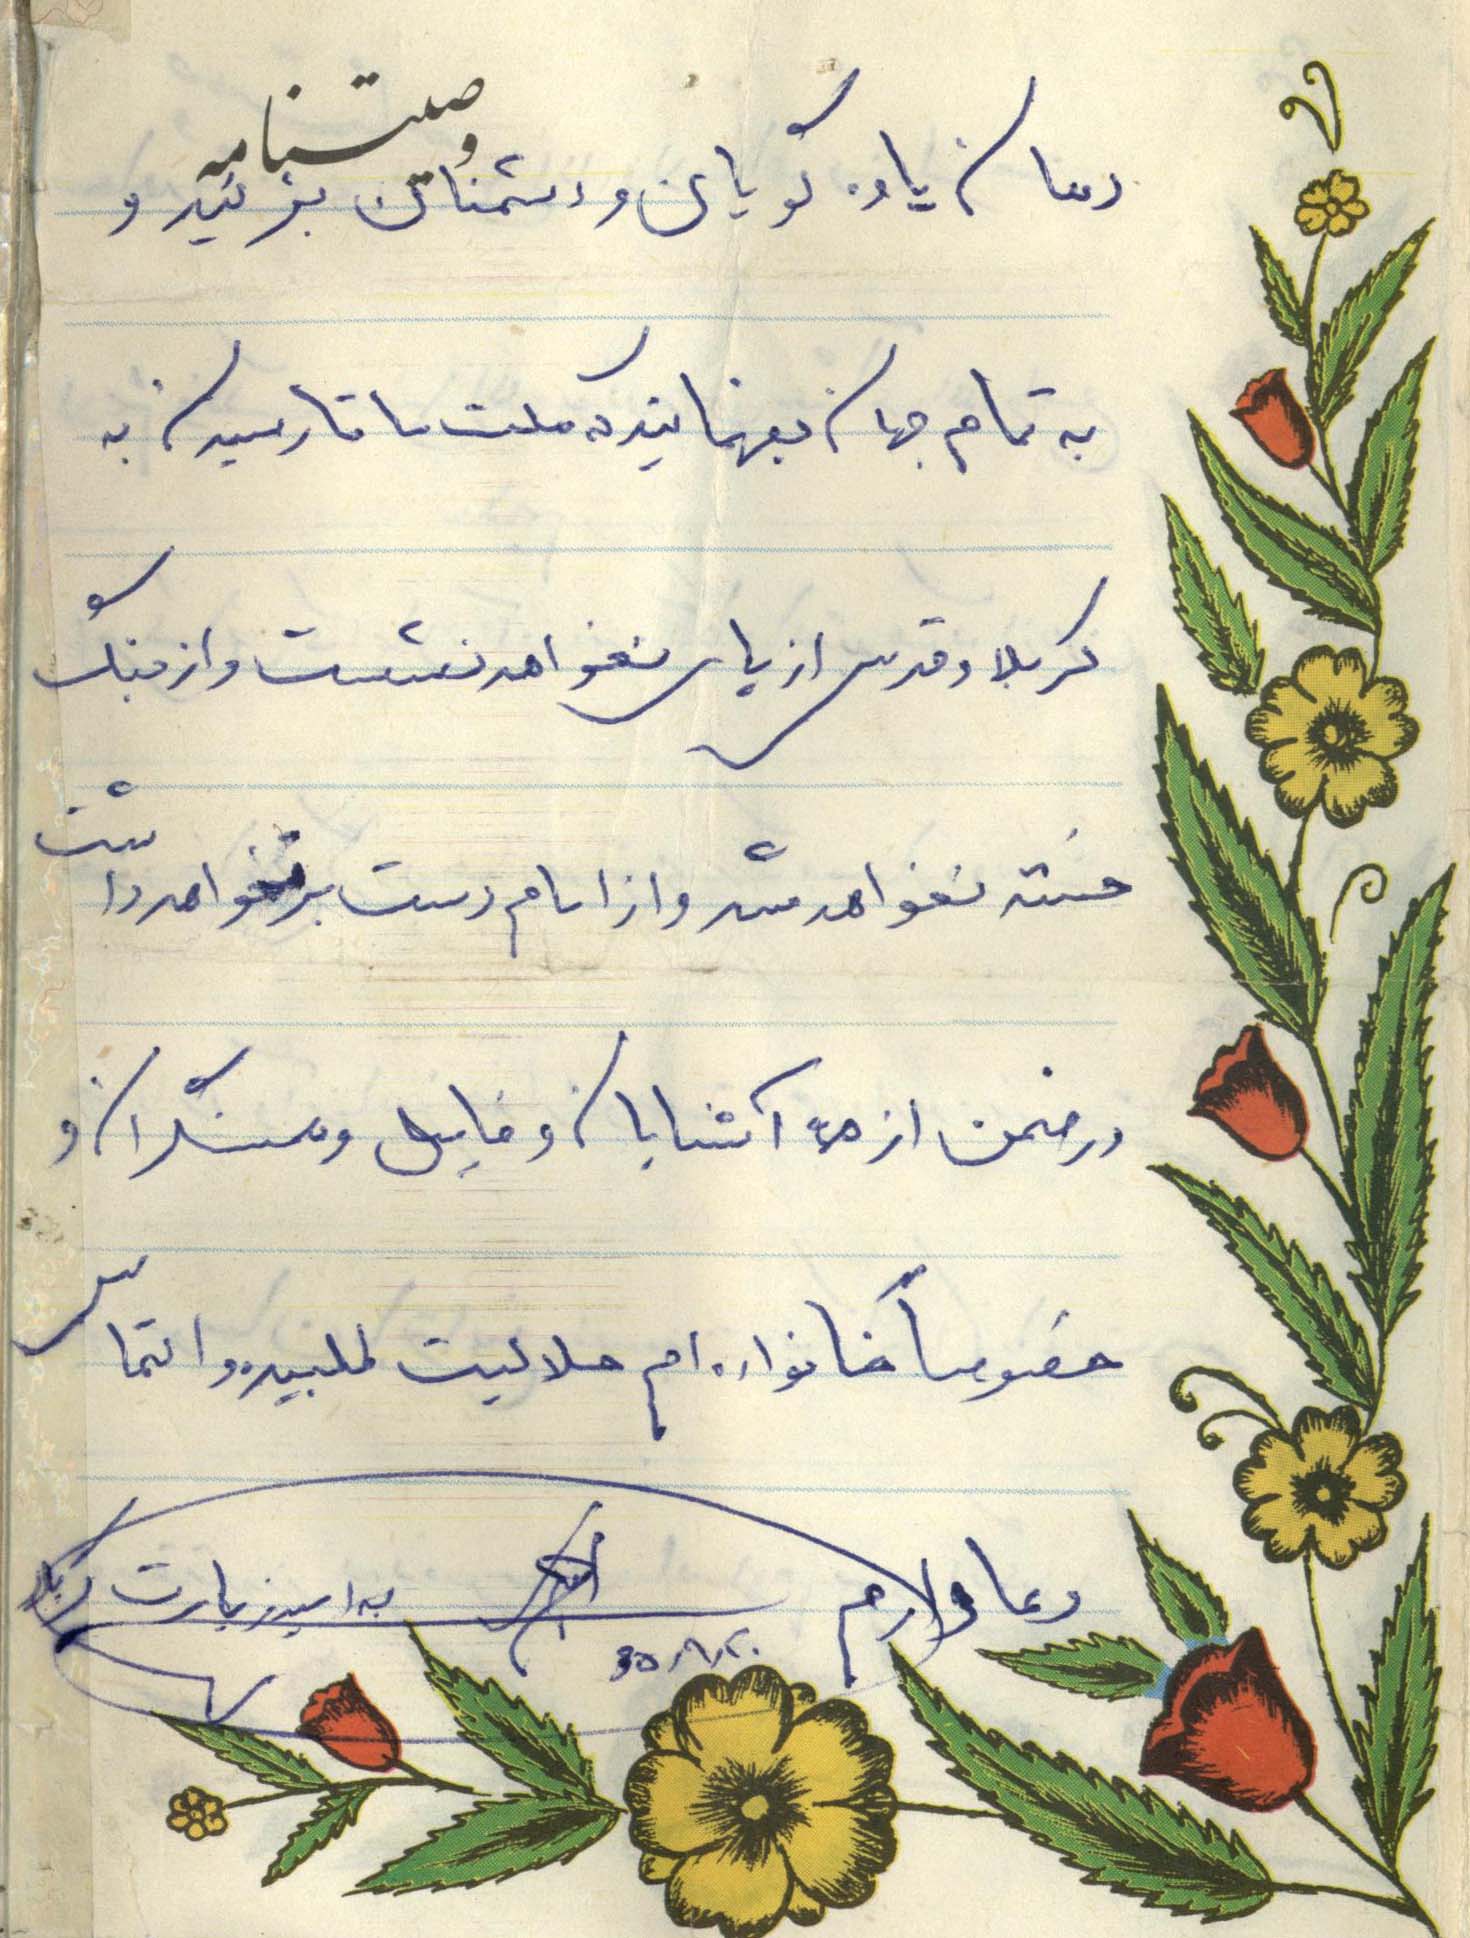 وصیتنامه
دهان یاوه گویان و دشمنان بزنید و
به تمام جهان بفهمانید که ملت ما تا رسیدن به
کربلا و قدس از پای نخواهد نشست و از جنگ
خسته نخواهد شد و از امام دست برنخواهد داشت
در ضمن از همه آشنایان و فامیل و همسنگران و
خصوصاً خانواده ام حلالیت طلبیده و التماس
دعا دارم
به امید زیارت کربلا